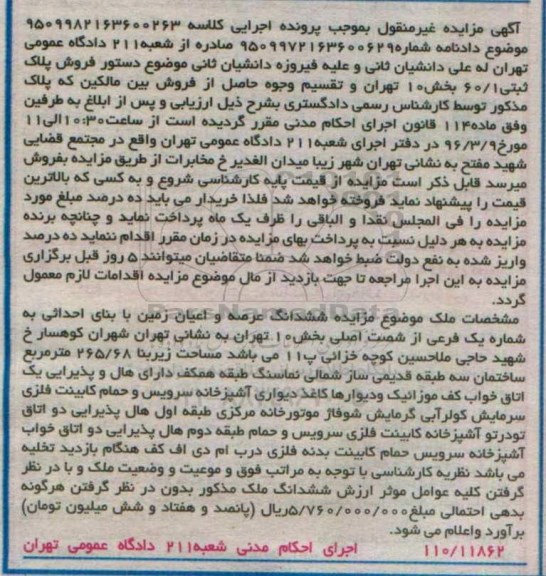 آگهی مزایده غیرمنقول بموجب پرونده اجرایی کلاسه ۹۵۰۹۹۸۲۱۶۳۶۰۰۲۶۳
موضوع دادنامه شماره۹۵۰۹۹۷۲۱۶۳۶۰۰۶۲۹ صادره از شعبه۲۱۱ دادگاه عمومی
تهران له علی دانشیان ثانی و علیه فیروزه دانشیان ثانی موضوع دستور فروش پلاک
ثبتی۶۰/۱ بخش۱۰ تهران و تقسیم وجوه حاصل از فروش بین مالکین که پلاک
مذکور توسط کارشناس رسمی دادگستری بشرح ذیل ارزیابی و پس از ابلاغ به طرفین
وفق ماده۱۱۴ قانون اجرای احکام مدنی مقرر گردیده است از ساعت۱۰:۳۰الی۱۱
مورخ۹۶/۳/۹ در دفتر اجرای شعبه۲۱۱ دادگاه عمومی تهران واقع در مجتمع قضایی
شهید مفتح به نشانی تهران شهر زیبا میدان الغدیر خ مخابرات از طریق مزایده بفروش
میرسد قابل ذکر است مزایده از قیمت پایه کارشناسی شروع و به کسی که بالاترین
قیمت را پیشنهاد نماید فروخته خواهد شد فلذا خریدار می باید ده درصد مبلغ مورد
مزایده را فی المجلس نقدا و الباقی را ظرف یک ماه پرداخت نماید و چنانچه برنده
مزایده به هر دلیل نسبت به پرداخت بهای مزایده در زمان مقرر اقدام ننماید ده درصد
واریز شده به نفع دولت ضبط خواهد شد ضمنا متقاضیان میتوانند ۵ روز قبل برگزاری
مزایده به این اجرا مراجعه تا جهت بازدید از مال موضوع مزایده اقدامات لازم معمول
گردد.
مشخصات ملک موضوع مزایده ششدانگ عرصه و اعیان زمین با بنای احداثی به
شماره یک فرعی از شصت اصلی بخش۱۰ تهران به نشانی تهران شهران کوهسار خ
شهید حاجی ملاحسین کوچه خزائی پ۱۱ می باشد مساحت زیربنا ۲۶۵/۶۸ مترمربع
ساختمان سه طبقه قدیمی ساز شمالی نماسنگ طبقه همکف دارای هال و پذیرایی یک
اتاق خواب کف موزائیک ودیوارها کاغذ دیواری آشپزخانه سرویس و حمام کابینت فلزی
سرمایش کولرآبی گرمایش شوفاژ موتورخانه مرکزی طبقه اول هال پذیرایی دو اتاق
تودرتو آشپزخانه کابینت فلزی سرویس و حمام طبقه دوم هال پذیرایی دو اتاق خواب
آشپزخانه سرویس حمام کابینت بدنه فلزی درب ام دی اف کف هنگام بازدید تخلیه
می باشد نظریه کارشناسی با توجه به مراتب فوق و موعیت و وضعیت ملک و با در نظر
گرفتن کلیه عوامل موثر ارزش ششدانگ ملک مذکور بدون در نظر گرفتن هرگونه
بدهی احتمالی مبلغ۵/۷۶۰/۰۰۰/۰۰۰ریال (پانصد و هفتاد و شش میلیون تومان)
برآورد واعلام می شود.
۱۱۰/۱۱۸۶۲ اجرای احکام مدنی شعبه۲۱۱ دادگاه عمومی تهران